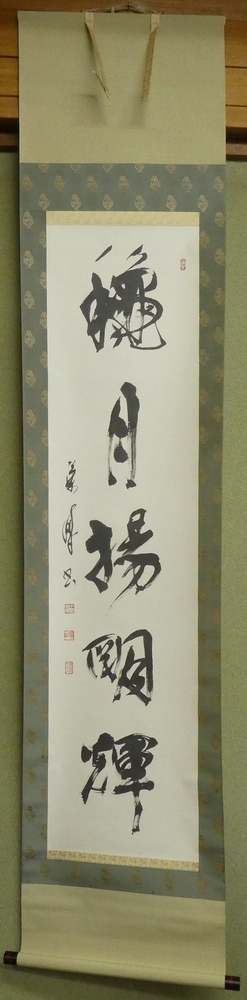 穐月揚明輝